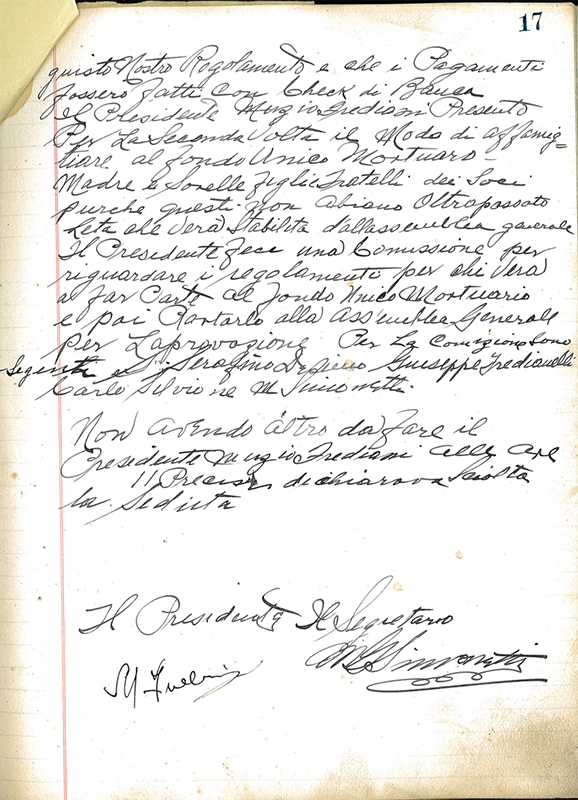 17
questo Nostro Regolamento e che i Pagamenti
fossero fatti con Check di Banca
il Presidente Muzio Frediani Presento
Per La Seconda Volta il Modo di affamig-
liare al Fondo Unico Mortuaro -
Madre e Sorelle Figlie Fratelli dei Soci
purche questi non abiano Oltrapassato
Leta che Verà Stabilita dallassemblea generale
Il Presidente fece una Comissione per
riguardare i regolamenti per chi Verà
a far Parte al Fondo Unico Mortuario
e poi Portarlo alla Assemblea Generale
per Laprovazione Per La Comizione Sono
Segenti Serafino Giuseppe Fredianelli
Carlo Silvio ne M Simonetti
Non avendo altro da fare il
Presidente Muzio Frediani alle Ore
11 Precise dichiarava Sciolta
la Seduta
Il Presidente Il Segretario
M Simonetti